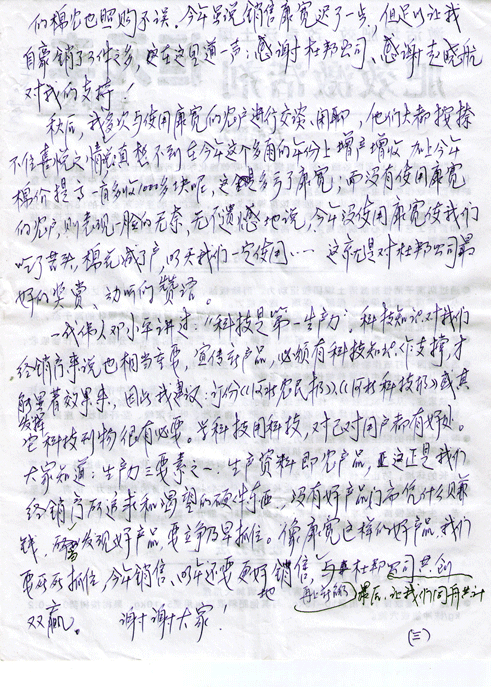 们棉农也照购不误、今年虽说销售康宽迟了一点,但足以让我
自家销了了件之多,还在这里道一声:感谢杜邦公司、感谢赵晓航
对我们支持!
秋后,我多次与使用康宽的农户进行交谈、闲聊,他们大都按捺
不住喜悦之情说真想不到在今年这个多雨的年份上增产增收加上今年
棉价提高一亩多收1000多块呢,这多亏了康宽;而没有使用康宽
的农户,则表现一脸的无奈,无不遗憾地说,今年没使用康宽使我们
吃了苦头,棉花减了产,明天我们一定使用……这就是对杜邦公司最
好的奖赏、动听的赞语。
一代伟人邓小平讲过:“科技是第一生产力”,科技知识对我们
经销商来说也相当重要,宣传新产品,必须有科技知识作支撑,才
能显著效果来,因此我建议:订份《河北农民报》、《河北科技报》或其
它科技刊物很有必要。学科技用科技,对己对用户都有好处。
大家知道:生产力三要素之一:生产资料即农产品,这正是我们
经销商所追求和渴望的硬件东西,没有好产品门市凭什么赚
钱,发现好产品,要立争及早抓住。像康宽这样的好产品,我们
要死死抓住,今年销售,明年还要更好地销售,与杜邦公司共创
最后,让我们同舟共济
双赢。 谢谢大家!
(三)